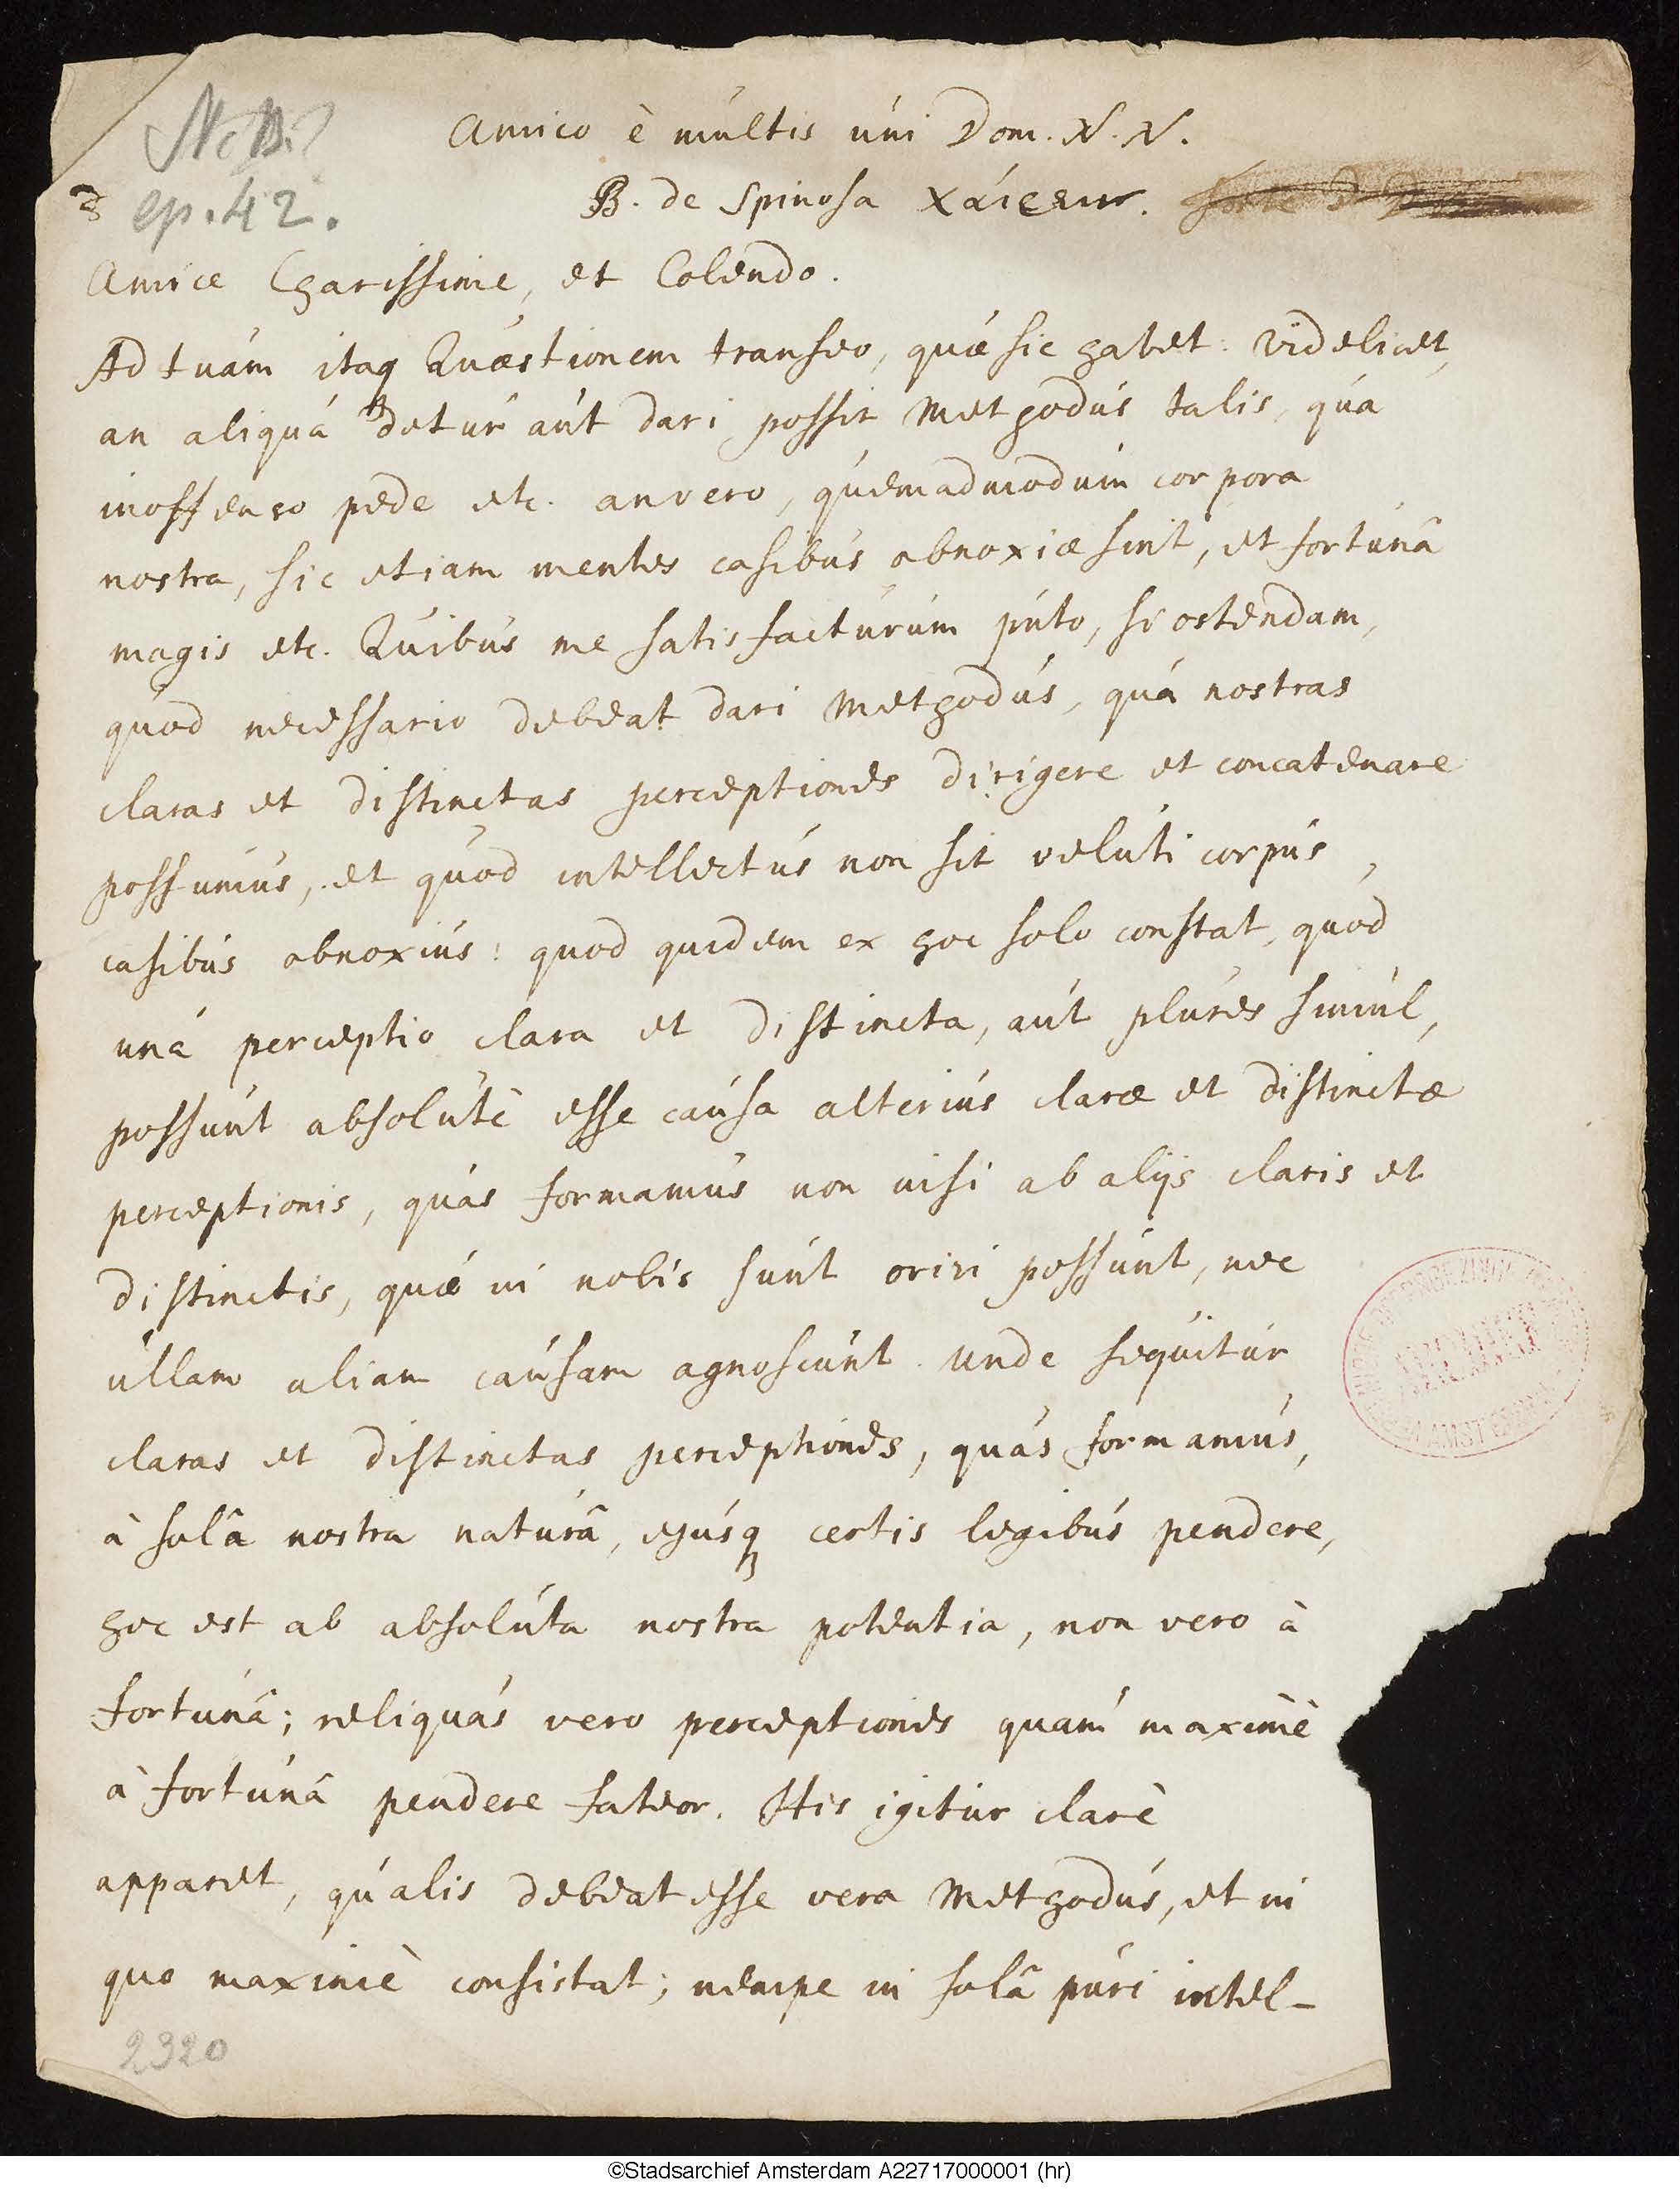 N.B.
ep. 42.
Amico è múltis úni Dom. N. N.
B. de Spinosa Χαίρειν.
Amice Charissime, et Colendo.
Ad tuám itaq Quæstionem transeo, quæ sic habet: Videlicet,
an aliquá detúr aút dari possit Methodús talis, quá
inoffenso pede etc. an vero, quemadmodúm corpora
nostra, sic etiam mentes casibús obnoxiæ sint, et fortúnâ
magis etc. Quibús me satisfactúrúm púto, si ostendam,
quod necessario debeat dari Methodús, quá nostras
claras et distinctas perceptiones dirigere et concatenare
possumús, et quod intellectús non sit velúti corpús,
casibús obnoxiús: quod quidem ex hoc solo constat, quod
uná perceptio clara et distincta, aút plúres simúl,
possúnt absolútè esse caúsa alteriús claræ et distinctæ
perceptionis, quás formamús non nisi ab alijs claris et
distinctis, quæ in nobis súnt oriri possúnt, nec
úllam aliam caúsam agnoscúnt. Unde sequitúr,
claras et distinctas perceptiones, quás formamús,
à solâ nostra natúrâ, ejúsq certis legibús pendere,
hoc est ab absolúta nostra potentia, non vero à
fortúnâ; reliquás vero perceptiones quam maximè
à fortúnâ pendere fateor. His igitúr clarè
apparet, quális debeat esse vera Methodús, et in
quo maximè consistat; nempe in solâ púri intel-
2320
©Stadsarchief Amsterdam A22717000001 (hr)